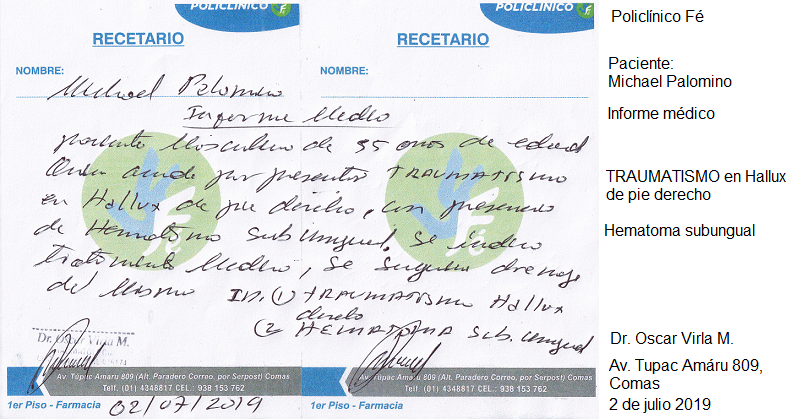 POLICLÍNICO Fé
POLICLÍNICO Fé
RECETARIO
RECETARIO
NOMBRE:
NOMBRE:
Michael Palomino
Informe Medico
paciente Masculino de 35 años de edad
Quien acude por presentar TRAUMATISMO
en Hallux de pie derecho, con presencia
de Hematoma SubUngueal, se indica
tratamiento Medico, se sugiere drenaje
del Mismo ID. (1) TRAUMATISMO Hallux
derecho
(2 HEMATOMA Sub. Ungueal
Fé
Fé
Dr. Oscar Virla M.
Av. Tupac Amaru 809 (Alt. Paradero Correo, por Serpost) Comas
Telf. (01) 4348817 CEL.: 938 153 762
Av. Tupac Amaru 809 (Alt. Paradero Correo, por Serpost) Comas
Telf. (01) 4348817 CEL.: 938 153 762
1er Piso - Farmacia
02/07/2019
1er Piso - Farmacia
Policlínico Fé
Paciente:
Michael Palomino
Informe médico
TRAUMATISMO en Hallux
de pie derecho
Hematoma subungual
Dr. Oscar Virla M.
Av. Tupac Amáru 809,
Comas
2 de julio 2019